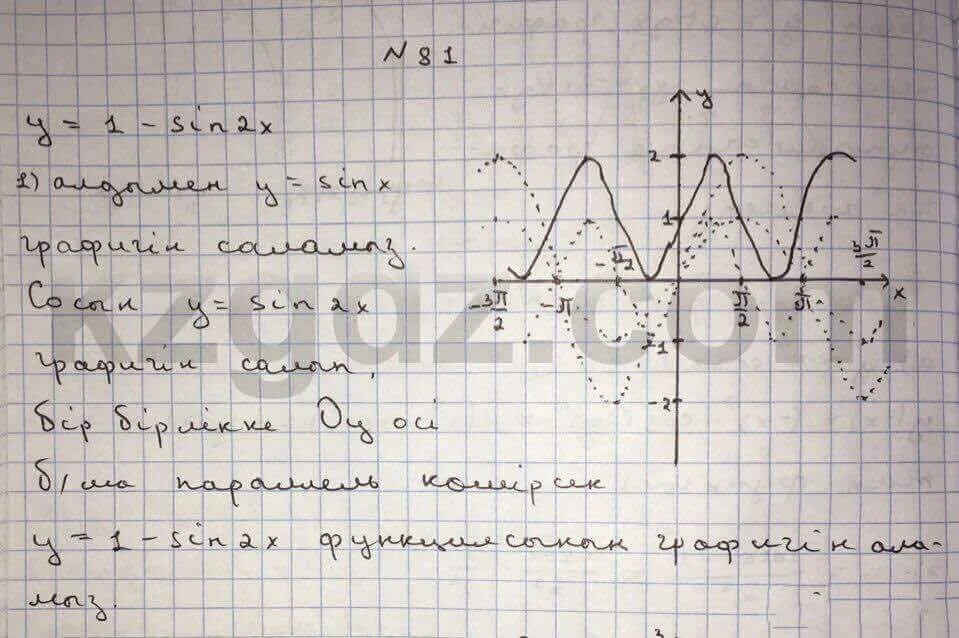 N 81
y = 1 - sin 2x
1) алдымен y = sin x
графигін саламыз.
Сосын y = sin 2x
графигін салып,
бір бірлікке Oy осі
б/ша параллель көшірсек
y = 1 - sin 2x функциясының графигін ала-
мыз.
y
2
1
-3π/2
-π
-π/2
π/2
π
3π/2
x
-1
-2
kzgdz.com
3